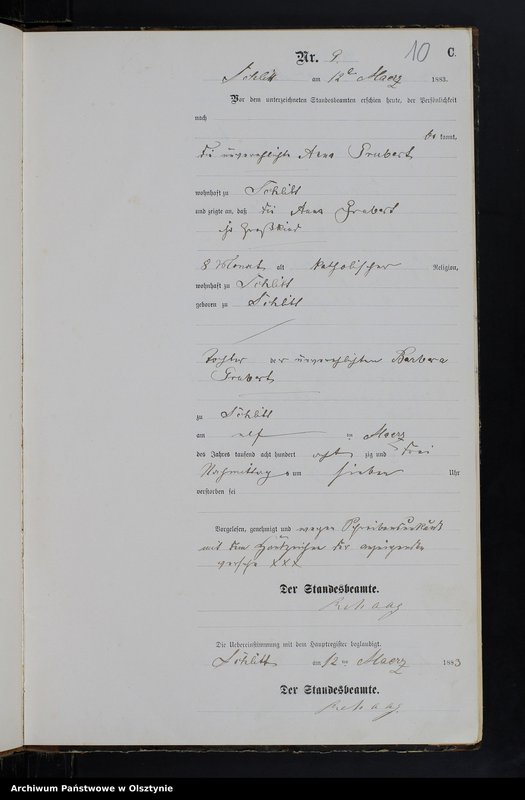 10 C.
Nr. 9.
Schlitt am 12ten Maerz 1883.
Vor dem unterzeichneten Standesbeamten erschien heute, der Persönlichkeit
nach
be kannt,
die unverehlichte Anna Grabert
wohnhaft zu Schlitt
und zeigte an, daß die Anna Grabert
ihr Großkind
8 Monat alt katholischer Religion,
wohnhaft zu Schlitt
geboren zu Schlitt
Tochter der unverehlichten Barbara
Grabert
zu Schlitt
am elf ten Maerz
des Jahres tausend acht hundert acht zig und drei
Nachmittags um sieben Uhr
verstorben sei
Vorgelesen, genehmigt und wegen Schreibensunkunde
mit dem Handzeichen der Anzeigenden
versehen XXX
Der Standesbeamte.
Die Uebereinstimmung mit dem Hauptregister beglaubigt.
Schlitt am 12ten Maerz 1883
Der Standesbeamte.
Archiwum Państwowe w Olsztynie